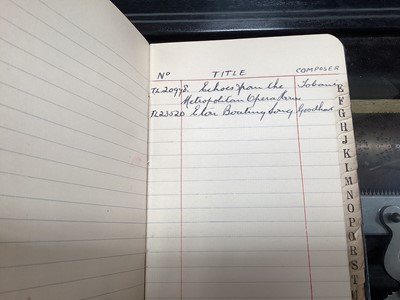 Nº TITLE COMPOSER
TL20978. Echoes from the Tobani
Metropolitan Opera House
TL23520 Eton Boating Song Goodhart
E
F
G
H
J
K
L
M
N
O
P
Q
R
S
T